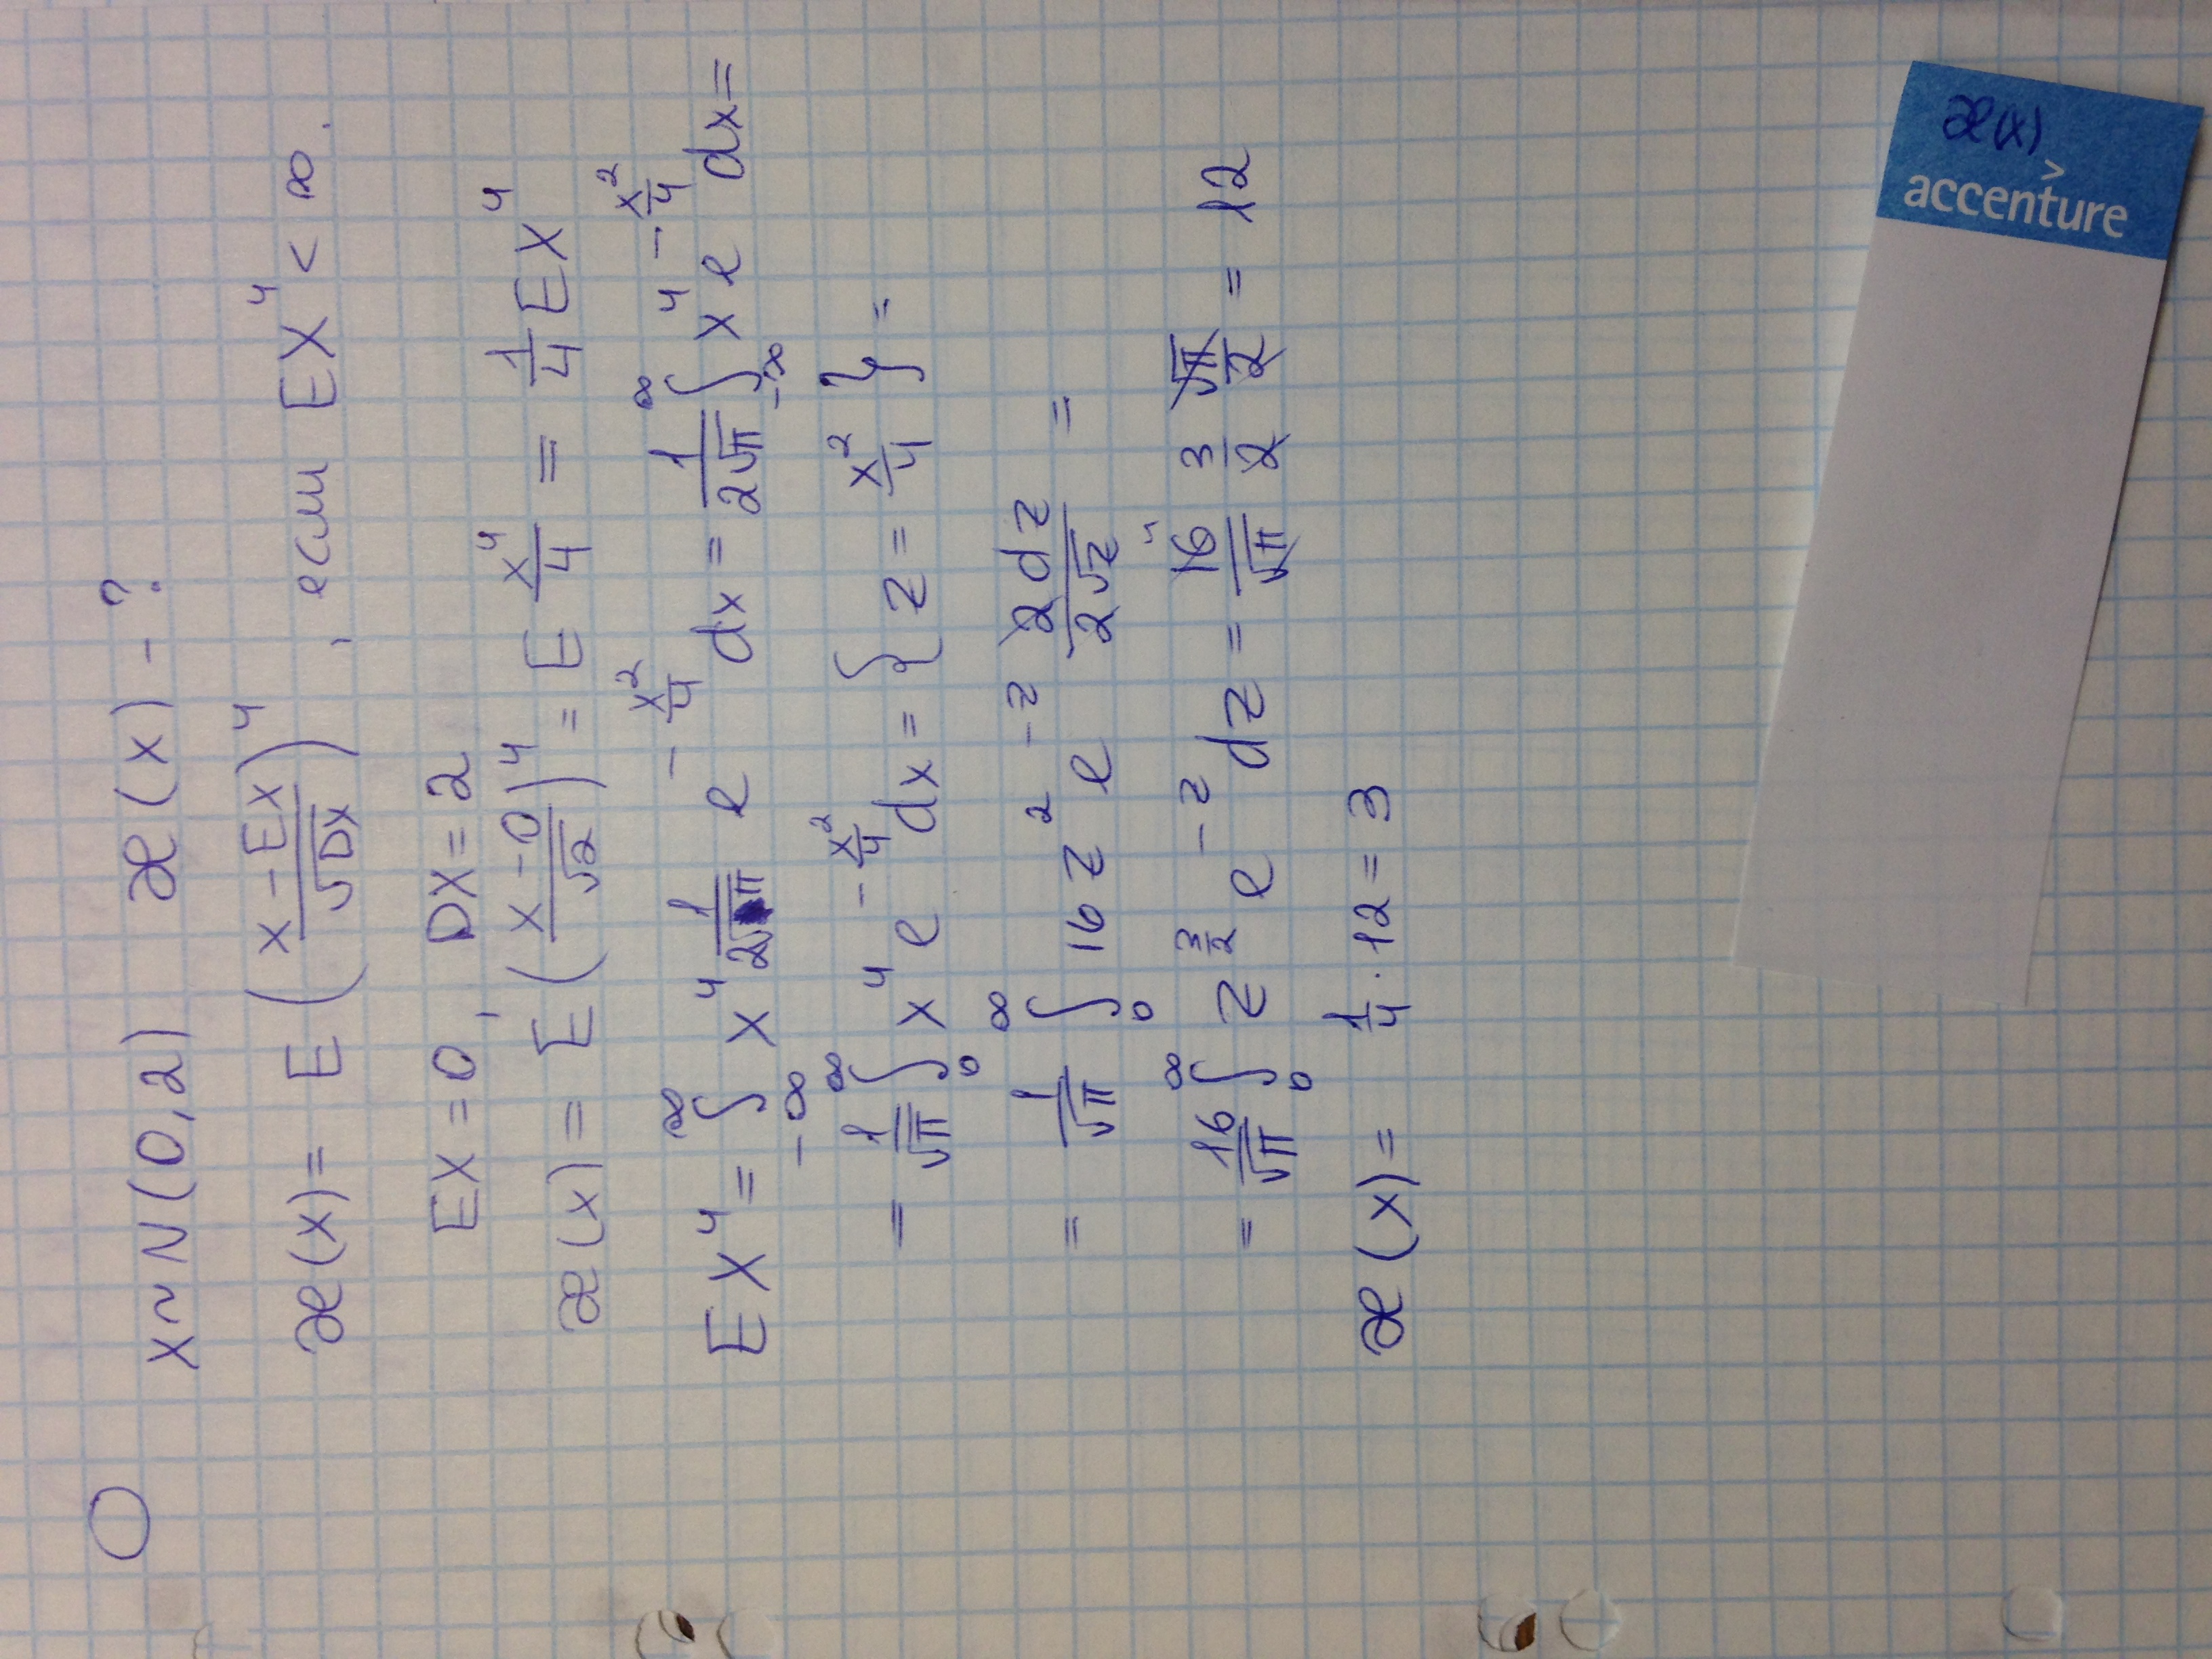 X ~ N(0,2) æ(x) - ?
æ(x) = E((X-EX)/√DX)^4, если EX^4 < ∞.
EX = 0, DX = 2
æ(x) = E((X-0)/√2)^4 = E X^4/4 = 1/4 EX^4
EX^4 = ∫_{-∞}^{∞} x^4 1/(2√π) e^{-x^2/4} dx = 1/(2√π) ∫_{-∞}^{∞} x^4 e^{-x^2/4} dx =
= 1/√π ∫_0^∞ x^4 e^{-x^2/4} dx = { z = x^2/4 } =
= 1/√π ∫_0^∞ 16 z^2 e^{-z} 2dz/(2√z) =
= 16/√π ∫_0^∞ z^{3/2} e^{-z} dz = 16/√π 3/2 √π/2 = 12
æ(x) = 1/4 · 12 = 3
æ(x)
>
accenture